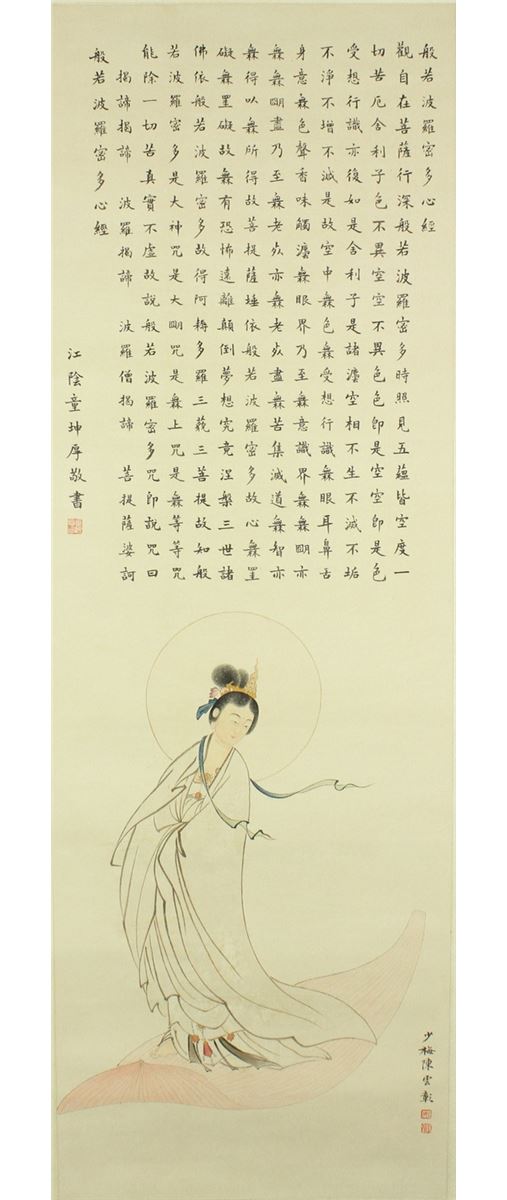 般若波羅密多心經
觀自在菩薩行深般若波羅密多時照見五蘊皆空度一
切苦厄舍利子色不異空空不異色色即是空空即是色
受想行識亦復如是舍利子是諸灋空相不生不滅不垢
不淨不增不滅是故空中無色無受想行識無眼耳鼻舌
身意無色聲香味觸灋無眼界乃至無意識界無無朙亦
無無朙盡乃至無老死亦無老死盡無苦集滅道無智亦
無得以無所得故菩提薩埵依般若波羅密多故心無罣
礙無罣礙故無有恐怖遠離顛倒夢想究竟涅槃三世諸
佛依般若波羅密多故得阿耨多羅三藐三菩提故知般
若波羅密多是大神咒是大朙咒是無上咒是無等等咒
能除一切苦真實不虛故說般若波羅密多咒即說咒曰
揭諦揭諦 波羅揭諦 波羅僧揭諦 菩提薩婆訶
般若波羅密多心經
江陰童坤厚敬書
少梅陳雲彰